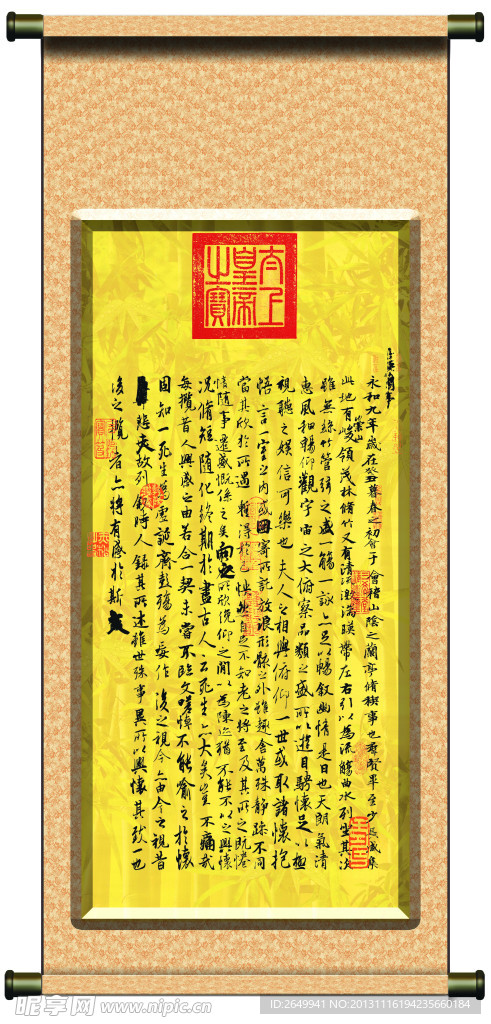 太上
皇帝
之寶
永和九年歲在癸丑暮春之初會于會稽山陰之蘭亭脩稧事也群賢畢至少長咸集
此地有崇山峻領茂林脩竹又有清流激湍暎帶左右引以為流觴曲水列坐其次
雖無絲竹管弦之盛一觴一詠亦足以暢敘幽情是日也天朗氣清
惠風和暢仰觀宇宙之大俯察品類之盛所以遊目騁懷足以極
視聽之娛信可樂也夫人之相與俯仰一世或取諸懷抱
悟言一室之內或因寄所託放浪形骸之外雖趣舍萬殊靜躁不同
當其欣於所遇暫得於己快然自足不知老之將至及其所之既惓
情隨事遷感慨係之矣向之所欣俛仰之閒以為陳迹猶不能不以之興懷
況脩短隨化終期於盡古人云死生亦大矣豈不痛哉
每攬昔人興感之由若合一契未嘗不臨文嗟悼不能喻之於懷
固知一死生為虛誕齊彭殤為妄作後之視今亦由今之視昔
悲夫故列敘時人錄其所述雖世殊事異所以興懷其致一也
後之攬者亦將有感於斯文
昵享网 www.nipic.cn
ID:2649941 NO:20131116194235660184